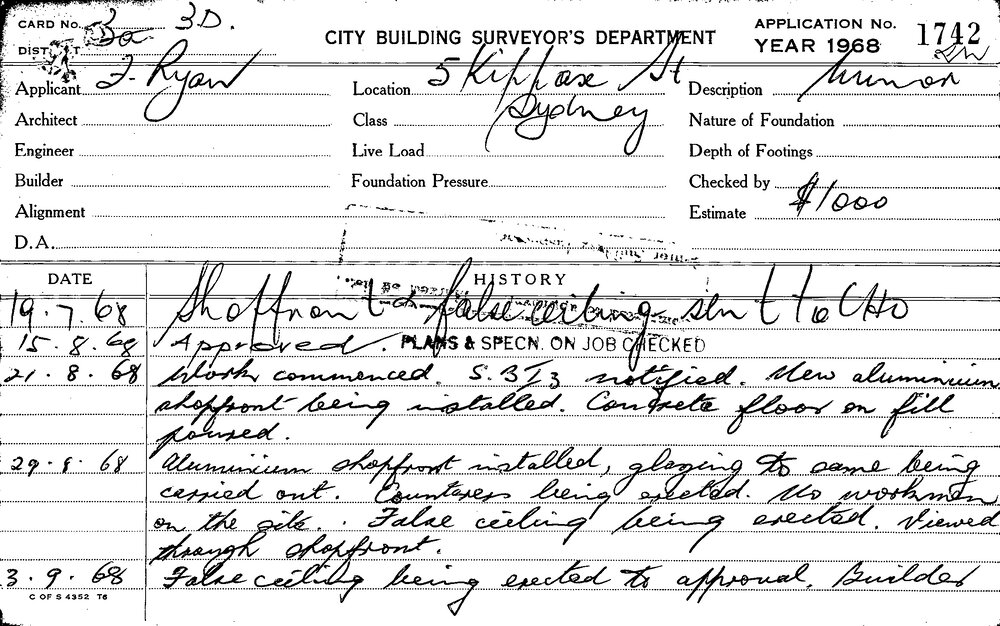 CARD No. 3a 3D.
DISTRICT
CITY BUILDING SURVEYOR'S DEPARTMENT
APPLICATION No. 1742
YEAR 1968
Applicant J. Ryan
Location 5 Kippax St
Sydney
Description Minor
Architect
Class
Nature of Foundation
Engineer
Live Load
Depth of Footings
Builder
Foundation Pressure
Checked by
Alignment
Estimate $1000
D.A.
DATE HISTORY
19.7.68 Shopfront & false ceiling sent to CHO
15.8.68 Approved. PLANS & SPECN. ON JOB CHECKED
21.8.68 Work commenced. S. notified. New aluminium
shopfront being installed. Concrete floor on fill
poured.
29.8.68 Aluminium shopfront installed, glazing to same being
carried out. Counters being erected. No workmen
on the site. False ceiling being erected. Viewed
through shopfront.
3.9.68 False ceiling being erected to approval. Builder
C OF S 4352 T6